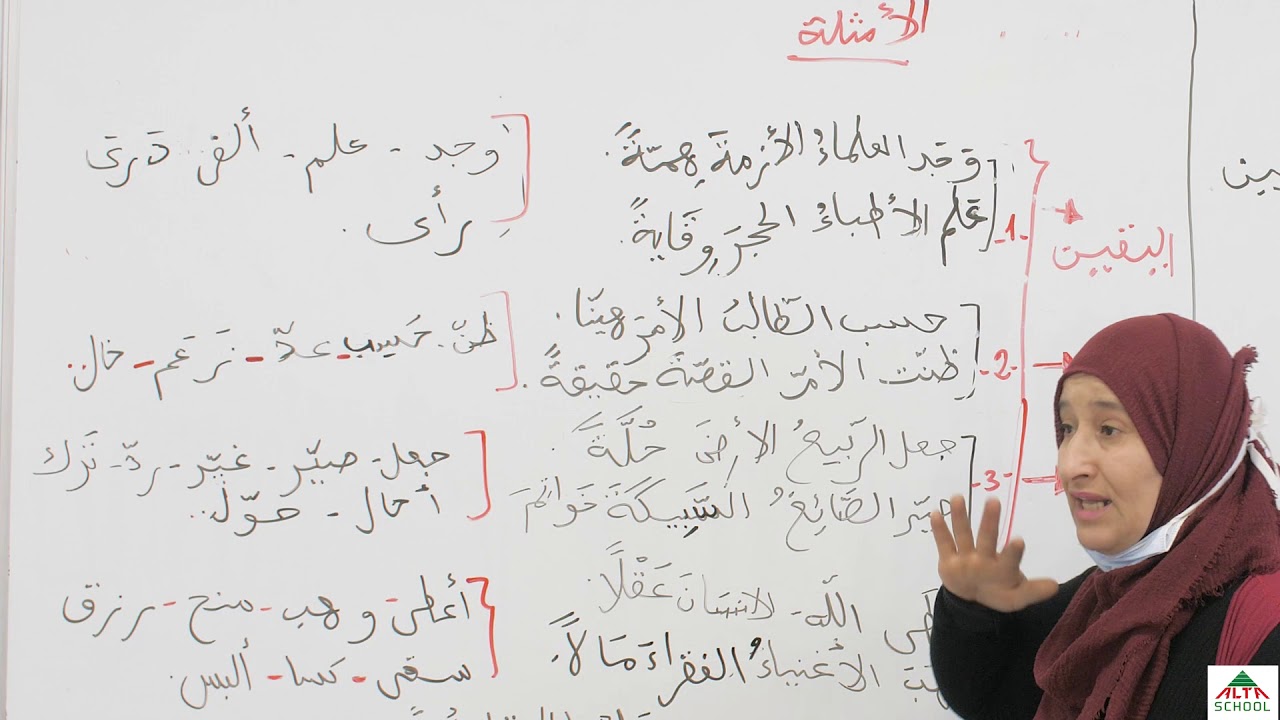 الأمثلة
وجد العلماءُ الأزمةَ همّةً.
علم الأطباءُ الحجرَ وقايةً.
-1-
اليقين
وجد - علم - ألفى دَرى
رأى.
حسب الطّالبُ الأمرَ هينّا.
ظنّت الأمّ القصّةَ حقيقةً.
-2-
ظنّ - حَسِب - عدّ - زَعَم - خال..
جعل الرّبيعُ الأرضَ حُلَّةً
صيّر الصَّائِغُ السَّبِيكَةَ خَوَاتِمَ
-3-
جعل - صيّر - غيّر - ردّ - تَرَك
أحال - حوّل..
اللّه الانسَانَ عَقْلًا
الأغنياءُ الفقراءَ مَالًا.
أعطى وهب - منح - رزق
سقى - كسا - ألبس.
ALTA
SCHOOL